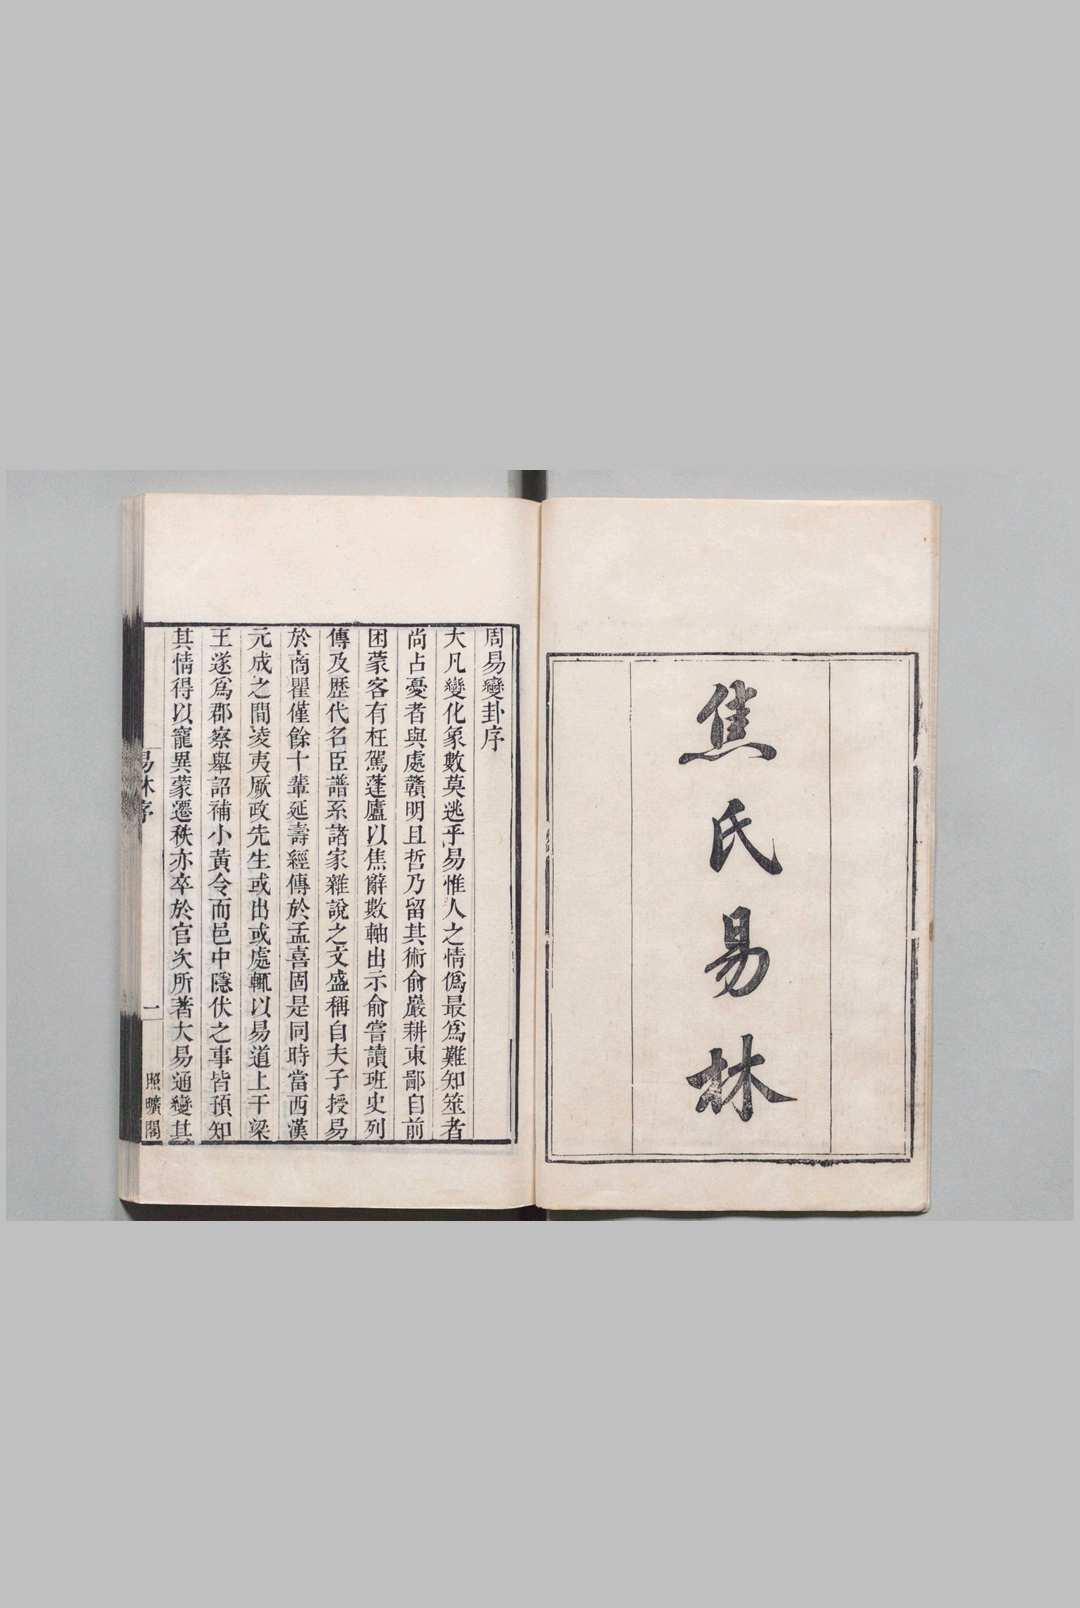 焦氏易林
周易變卦序
大凡變化象數莫逃乎易惟人之情僞最爲難知筮者
尚占憂者與處贛明且哲乃留其術俞嚴耕東鄙自前
困蒙客有枉駕蓬廬以焦辭數軸出示俞嘗讀班史列
傳及歷代名臣譜系諸家雜說之文盛稱自夫子授易
於商瞿僅餘十輩延壽經傳於孟喜固是同時當西漢
元成之間凌夷厥政先生或出或處輒以易道上干梁
王遂爲郡察舉詔補小黃令而邑中隱伏之事皆預知
其情得以寵異蒙遷秩亦卒於官次所著大易通變其
易林序
一
照曠閣